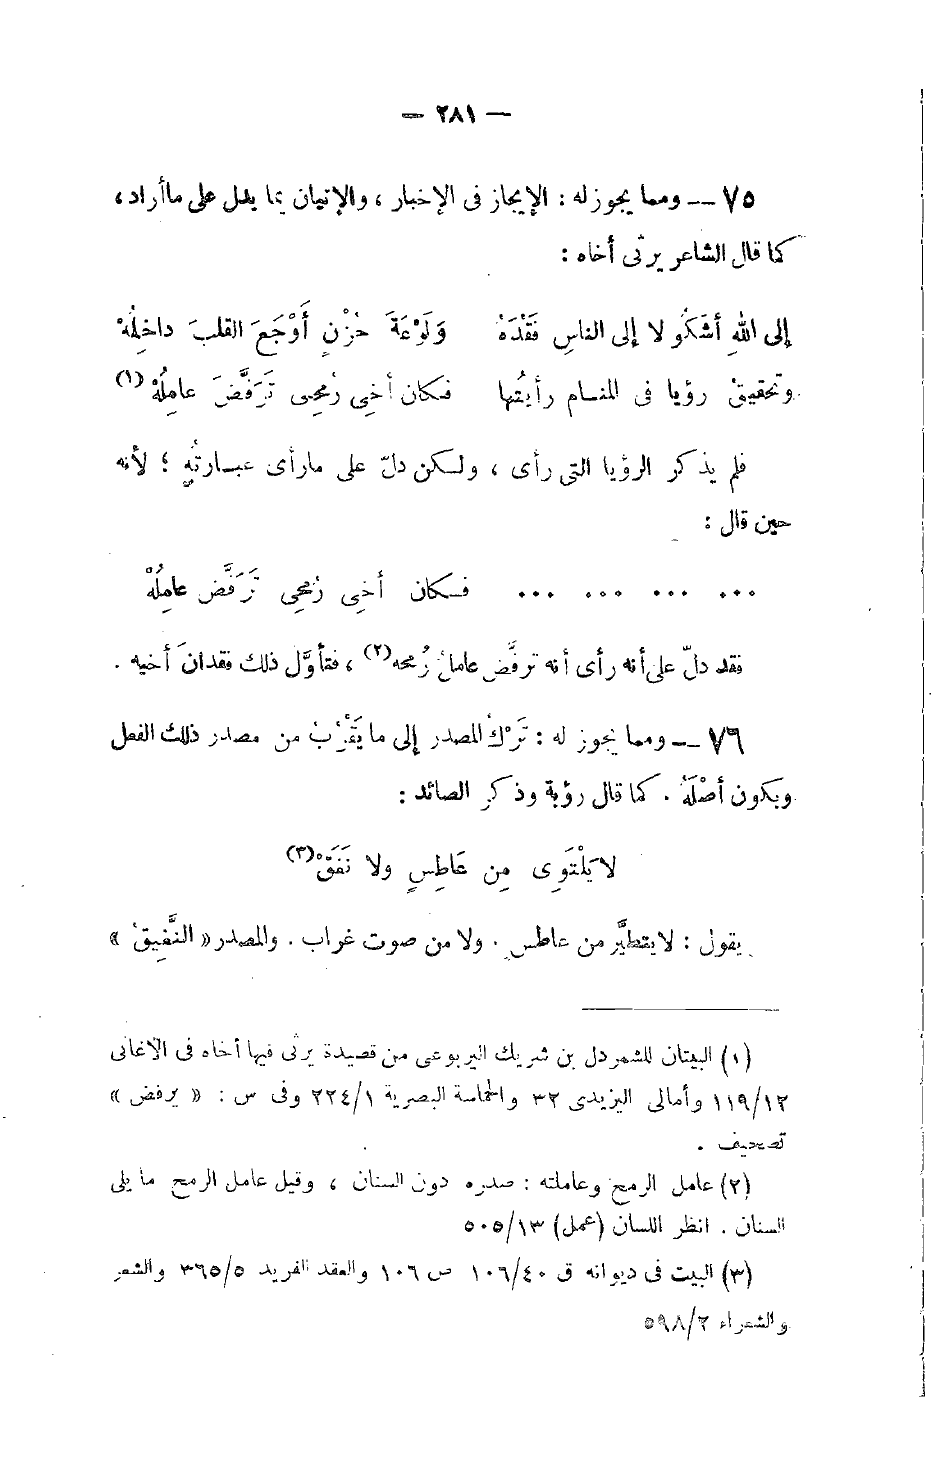 — ٢٨١ —
٧٥ — ومما يجوز له : الإيجاز فى الإخبار ، والإتيان بما يدل على ما أراد ،
كما قال الشاعر يرثى أخاه :
إلى اللهِ أَشكُو لا إلى الناسِ فَقْدَهُ وَلَوْعَةَ حُزْنٍ أَوْجَعَ القلبَ داخِلُهْ
وتحقيقَ رؤيا فى المنـام رأيتُها فـكان أخِى رُمحِى تَرَفَّضَ عامِلُهْ (١)
فلم يذكر الرؤيا التى رأى ، ولـكن دلّ على ما رأى عبـارتُه ؛ لأنه
حين قال :
... ... ... ... فـكان أخِى رُمحِى تَرَفَّض عامِلُهْ
فقد دلّ على أنه رأى أنه ترفَّض عاملُ رُمحه (٢) ، فتأوَّل ذلك فقدانَ أخيه .
٧٦ — ومما يجوز له : تَرْكُ المصدر إلى ما يَقْرُبُ من مصدر ذلك الفعل
ويكون أصْلَهُ . كما قال رؤبة وذكر الصائد :
لا يَلْتَوِى مِن عَاطِسٍ ولا نَغَقْ (٣)
يقول : لا يتطيَّر من عاطس . ولا من صوت غراب . والمصدر « النَّغِيقُ »
(١) البيتان للشمردل بن شريك اليربوعى من قصيدة يرثى فيها أخاه فى الأغانى
١١٩/١٢ وأمالى اليزيدى ٣٢ والحماسة البصرية ٢٢٤/١ وفى س : « يرفض »
تصحيف .
(٢) عامل الرمح وعاملته : صدره دون السنان ، وقيل عامل الرمح ما يلى
السنان . انظر اللسان (عمل) ٥٠٥/١٣
(٣) البيت فى ديوانه ق ١٠٦/٤٠ ص ١٠٦ والعقد الفريد ٣٦٥/٥ والشعر
والشعراء ٥٩٨/٢